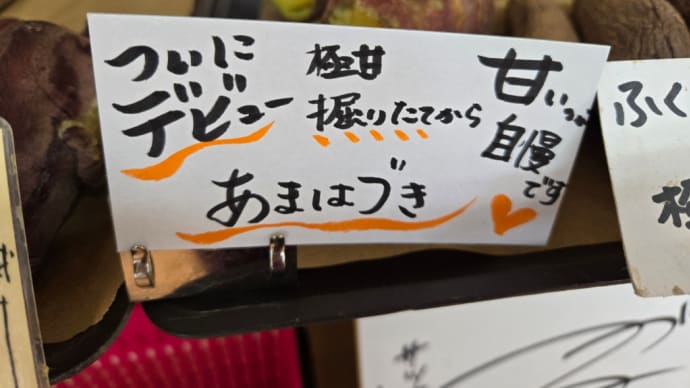 ついに
デビュー
極甘
掘りたてから
甘いっ
自慢
です
あまはづき
ふく